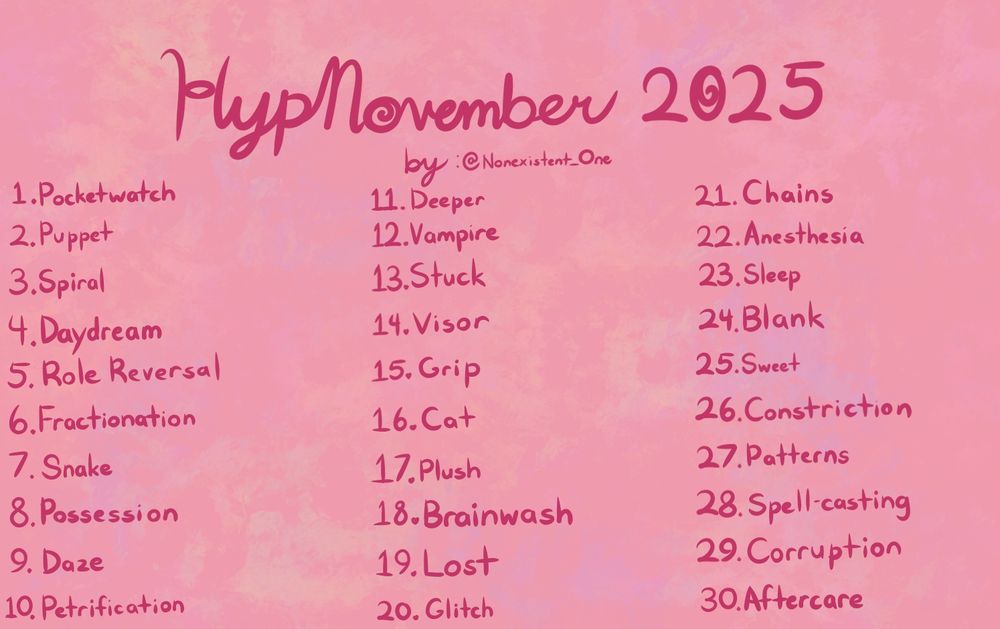 HypNovember 2025
by :@Nonexistent_One
1. Pocketwatch
2. Puppet
3. Spiral
4. Daydream
5. Role Reversal
6. Fractionation
7. Snake
8. Possession
9. Daze
10. Petrification
11. Deeper
12. Vampire
13. Stuck
14. Visor
15. Grip
16. Cat
17. Plush
18. Brainwash
19. Lost
20. Glitch
21. Chains
22. Anesthesia
23. Sleep
24. Blank
25. Sweet
26. Constriction
27. Patterns
28. Spell-casting
29. Corruption
30. Aftercare